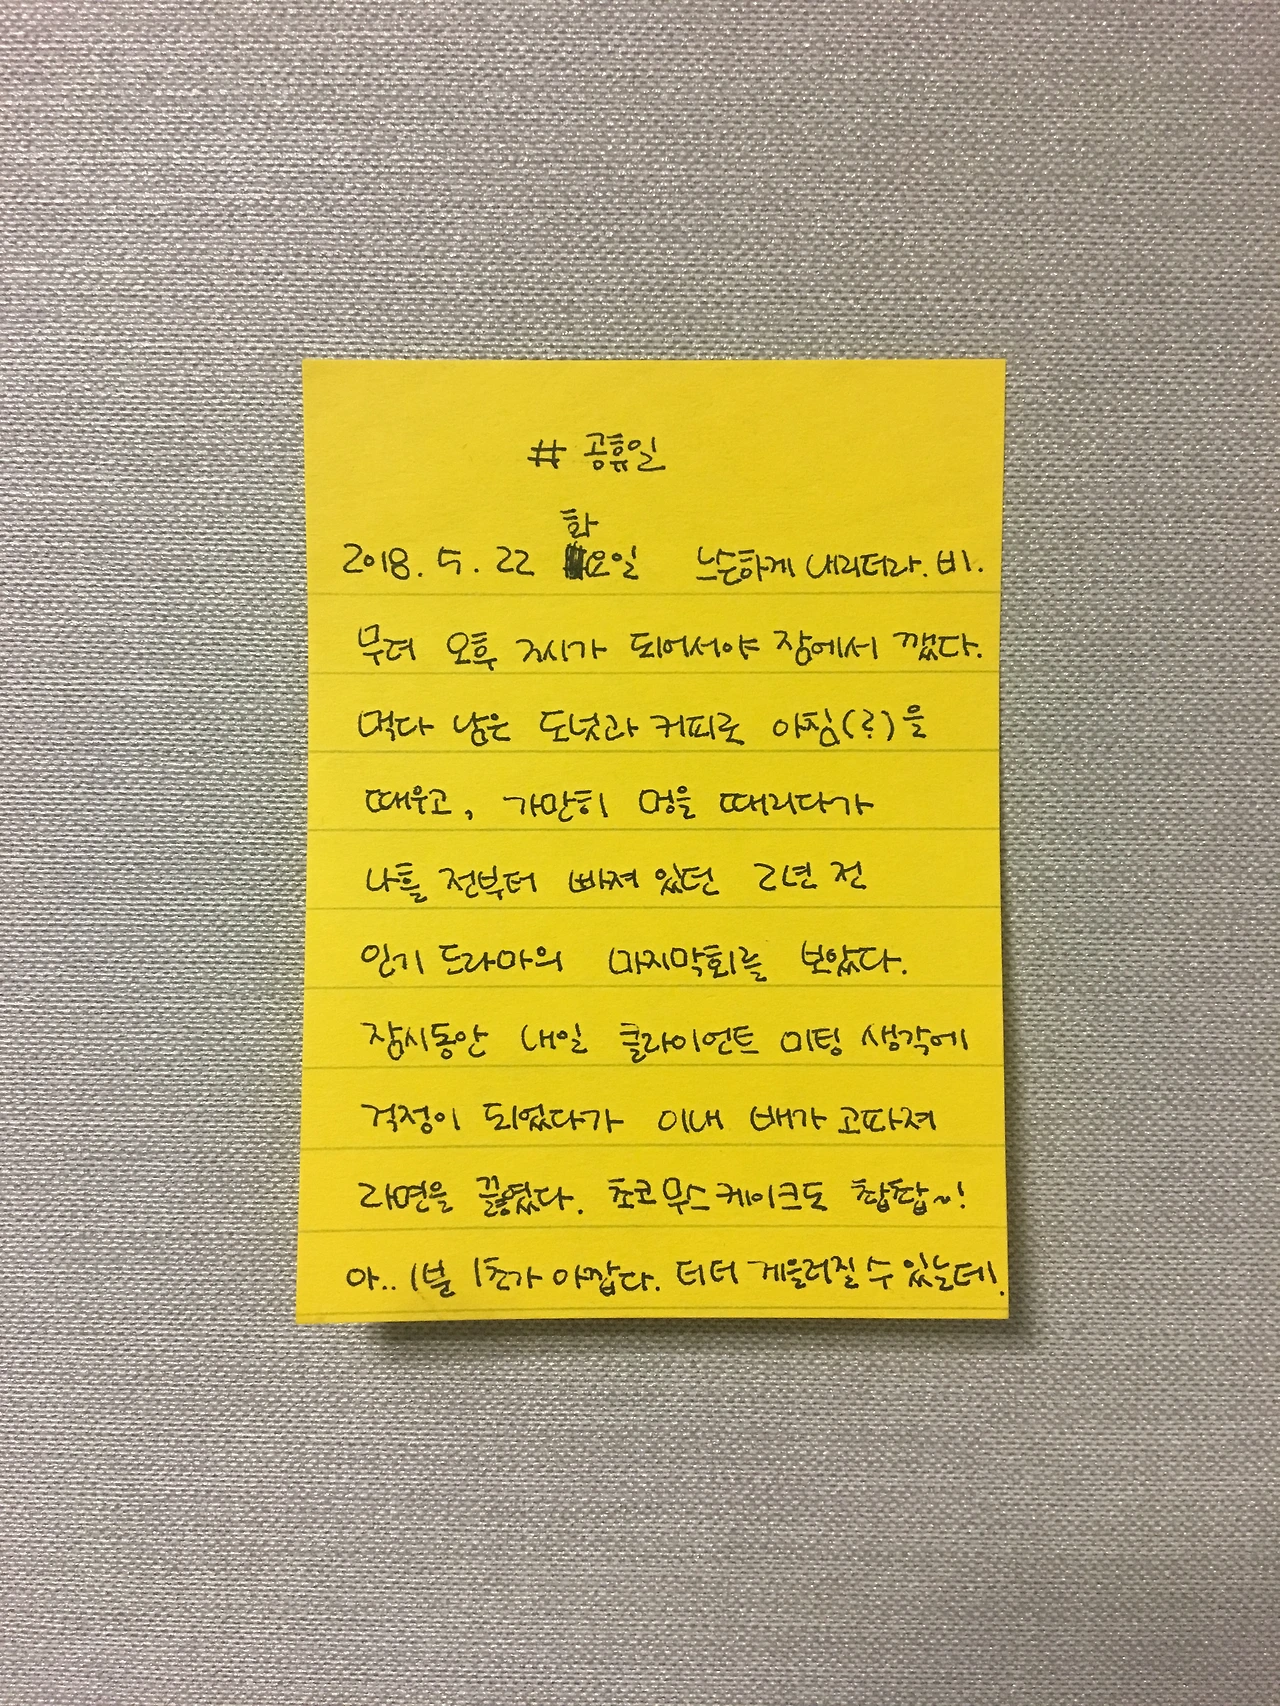 # 공휴일
화
2018. 5. 22 요일 느슨하게 내리더라. 비.
무려 오후 2시가 되어서야 잠에서 깼다.
먹다 남은 도넛과 커피로 아침(?)을
때우고, 가만히 멍을 때리다가
나흘 전부터 빠져 있던 2년 전
인기 드라마의 마지막회를 보았다.
잠시동안 내일 클라이언트 미팅 생각에
걱정이 되었다가 이내 배가 고파져
라면을 끓였다. 초코 무스 케이크도 촵촵~!
아.. 1분 1초가 아깝다. 더더 게을러질 수 있는데!